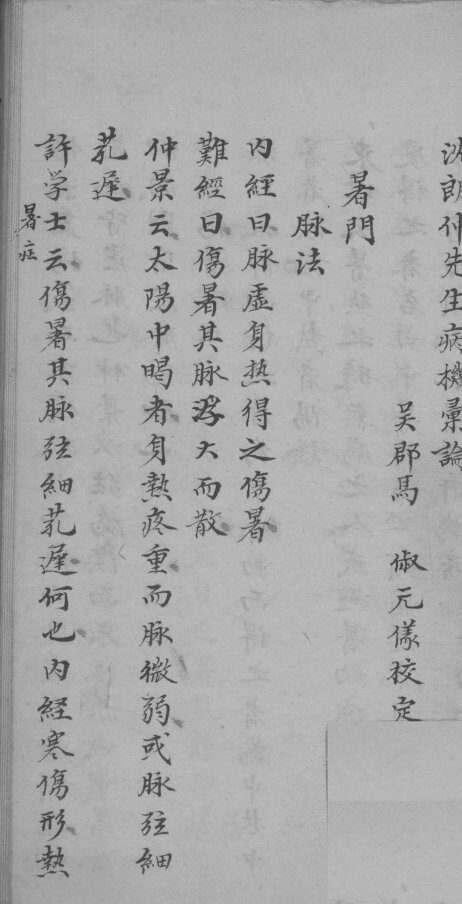 沈朗仲先生病機彙論
吴郡馬 俶元儀校定
暑門
脉法
内經曰脉虛身热得之傷暑
難經曰傷暑其脉浮大而散
仲景云太陽中暍者身熱疼重而脉微弱或脉弦細
芤遲
許学士云傷暑其脉弦細芤遲何也内経寒傷形熱
暑症